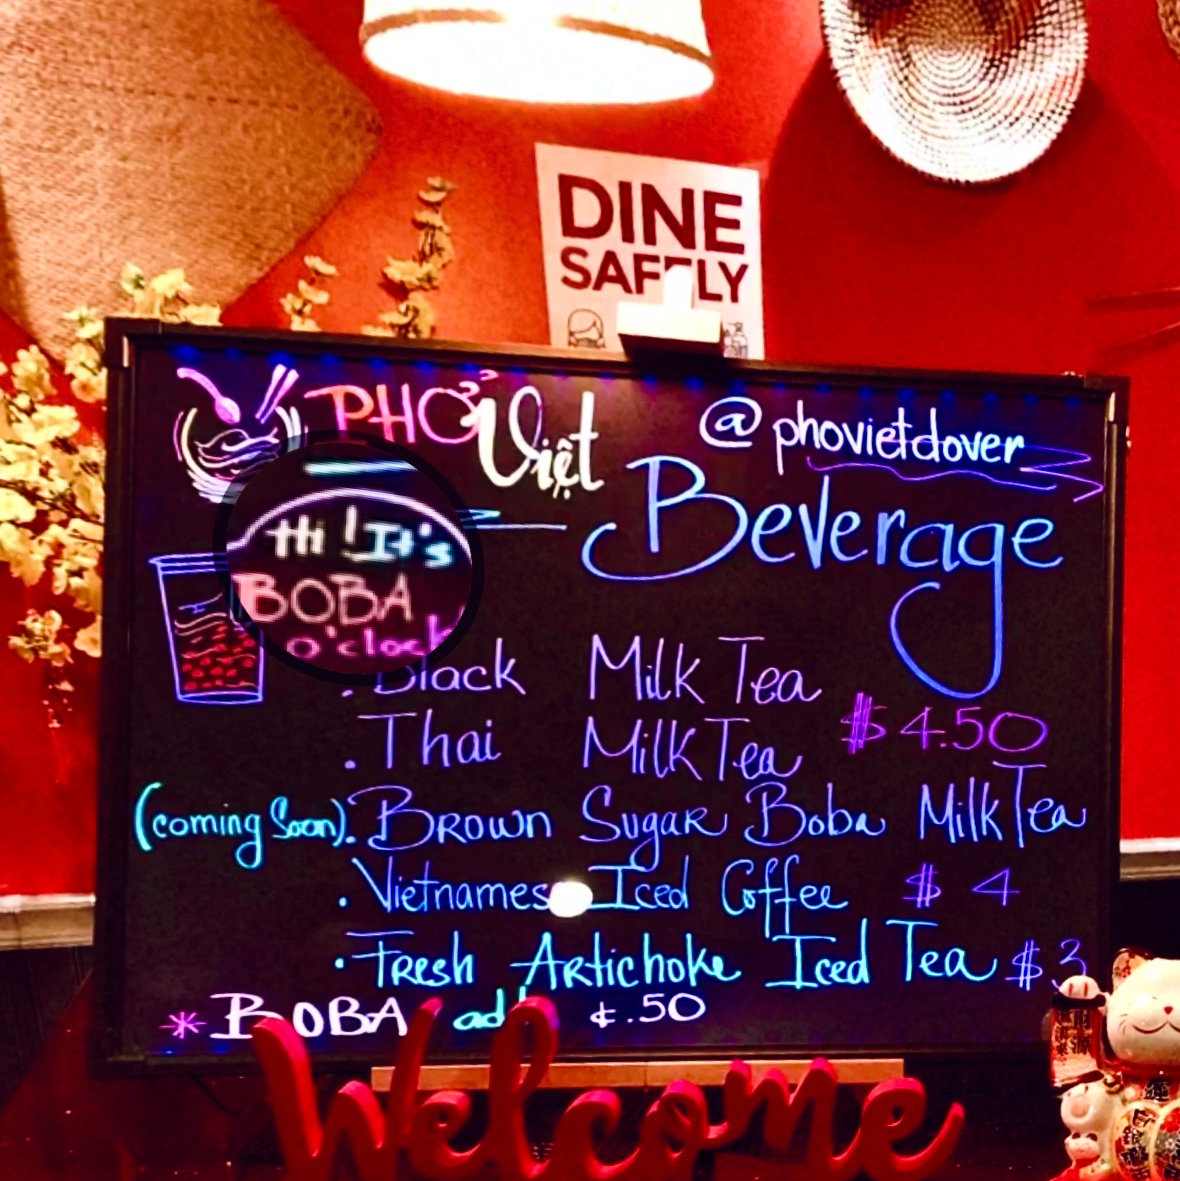 DINE
SAFELY
PHỞ Việt
@phovietdover
Beverage
Hi! It's
BOBA
o'clock
. Black Milk Tea
. Thai Milk Tea $4.50
(coming Soon). Brown Sugar Boba Milk Tea
. Vietnamese Iced Coffee $4
. Fresh Artichoke Iced Tea $3
* BOBA add ¢.50
Welcome